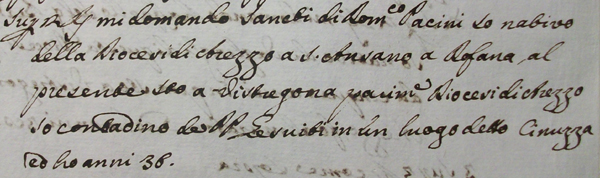 mi domando Santi di Dom.co Pacini so nativo
della Diocesi d'Arezzo a S. Ansano a Dofana, al
presente sto a Vistregona parim.e Diocesi d'Arezzo
so contadino de PP. Gesuiti in un luogo detto Cinuzza
ed ho anni 36.